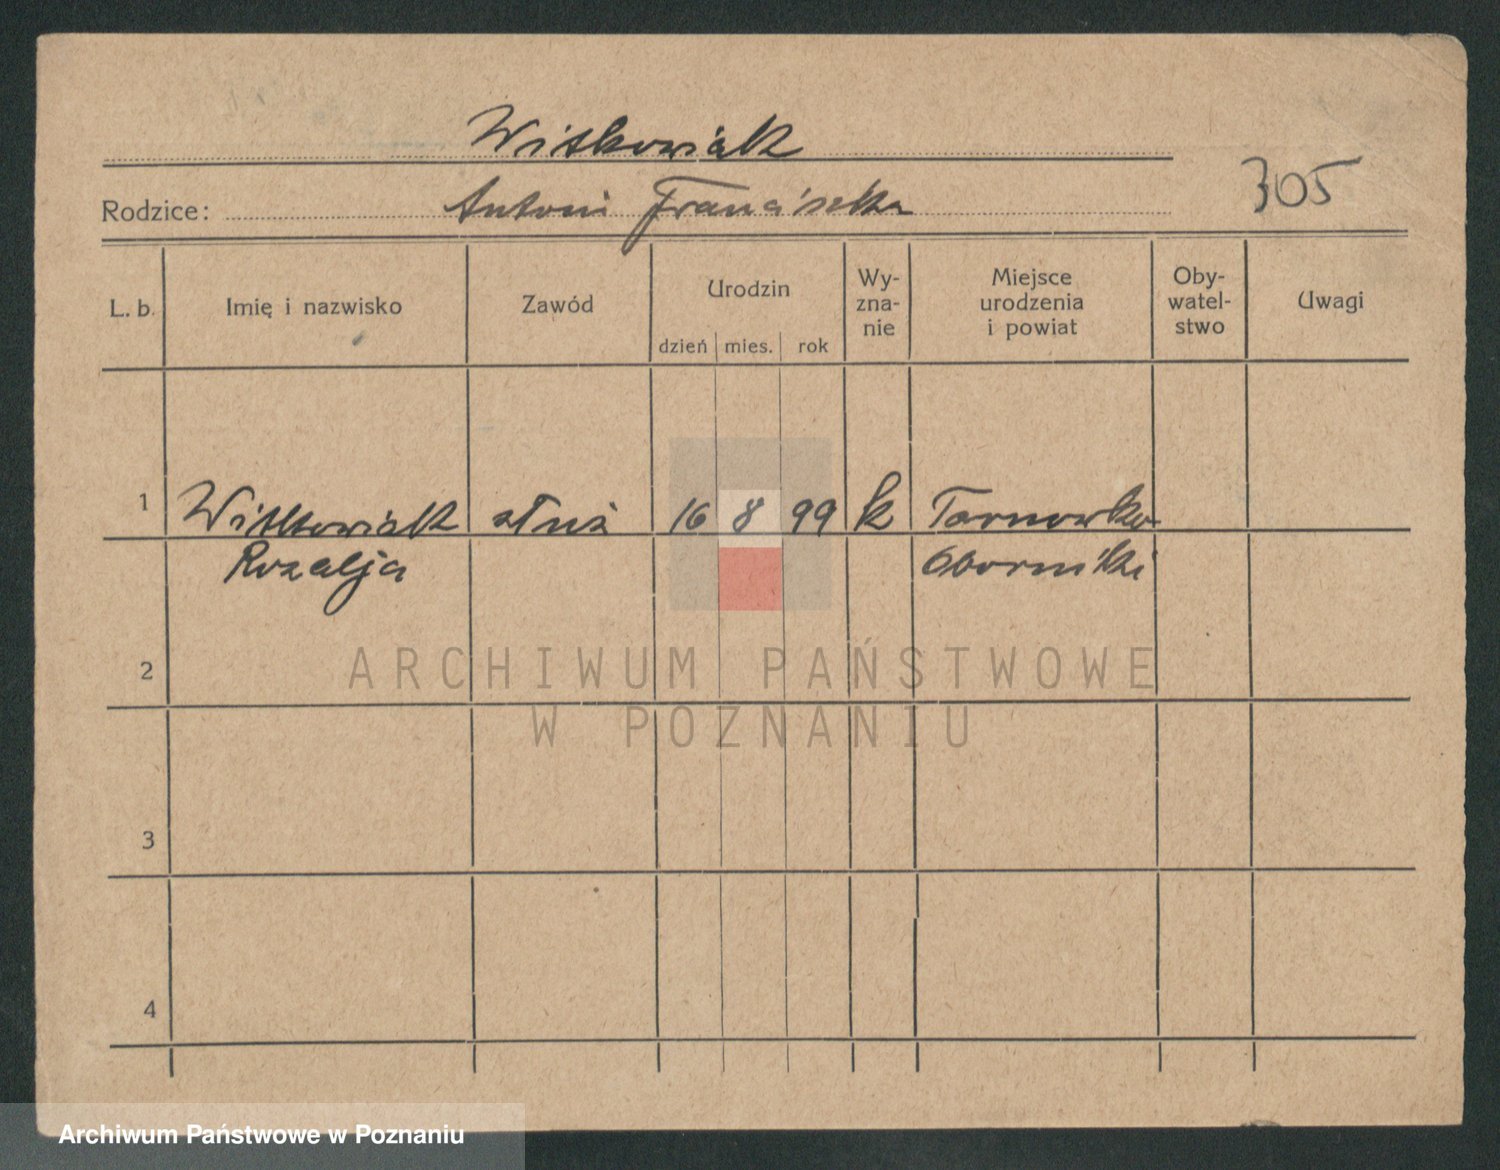 Witkowiak
305
Rodzice: Antoni Franciszka
L. b. Imię i nazwisko Zawód Urodzin dzień mies. rok Wy-zna-nie Miejsce urodzenia i powiat Oby-watel-stwo Uwagi
1 Witkowiak służ 16 8 99 k Tarnowko
Rozalja Oborniki
2
ARCHIWUM PAŃSTWOWE
W POZNANIU
3
4
Archiwum Państwowe w Poznaniu